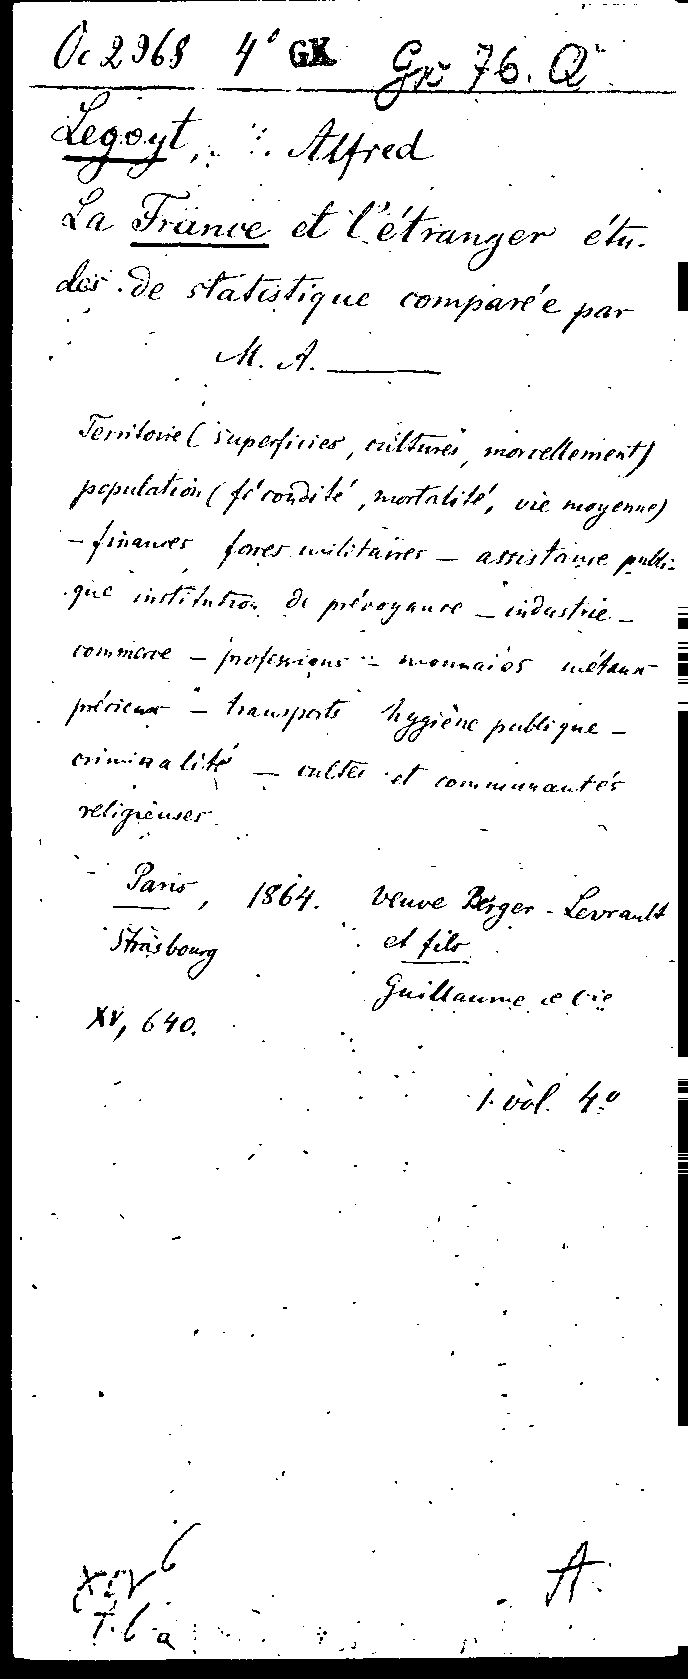 Oc 2968 4° GK Gw 76. Q
Legoyt, Alfred
La France et l'étranger étu-
des de statistique comparée par
M. A. ———
Territoire (superficies, cultures, morcellement)
population (fécondité, mortalité, vie moyenne)
— finances forces militaires — assistance publi-
que institution de prévoyance — industrie —
commerce — professions — monnaies métaux
précieux — transports hygiène publique —
criminalité — cultes et communautés
religieuses.
Paris, 1864. Veuve Berger-Levrault
Strasbourg et fils
Guillaume e Cie
XV, 640.
1 vol. 4°
XIV 6 A.
T. 6 a